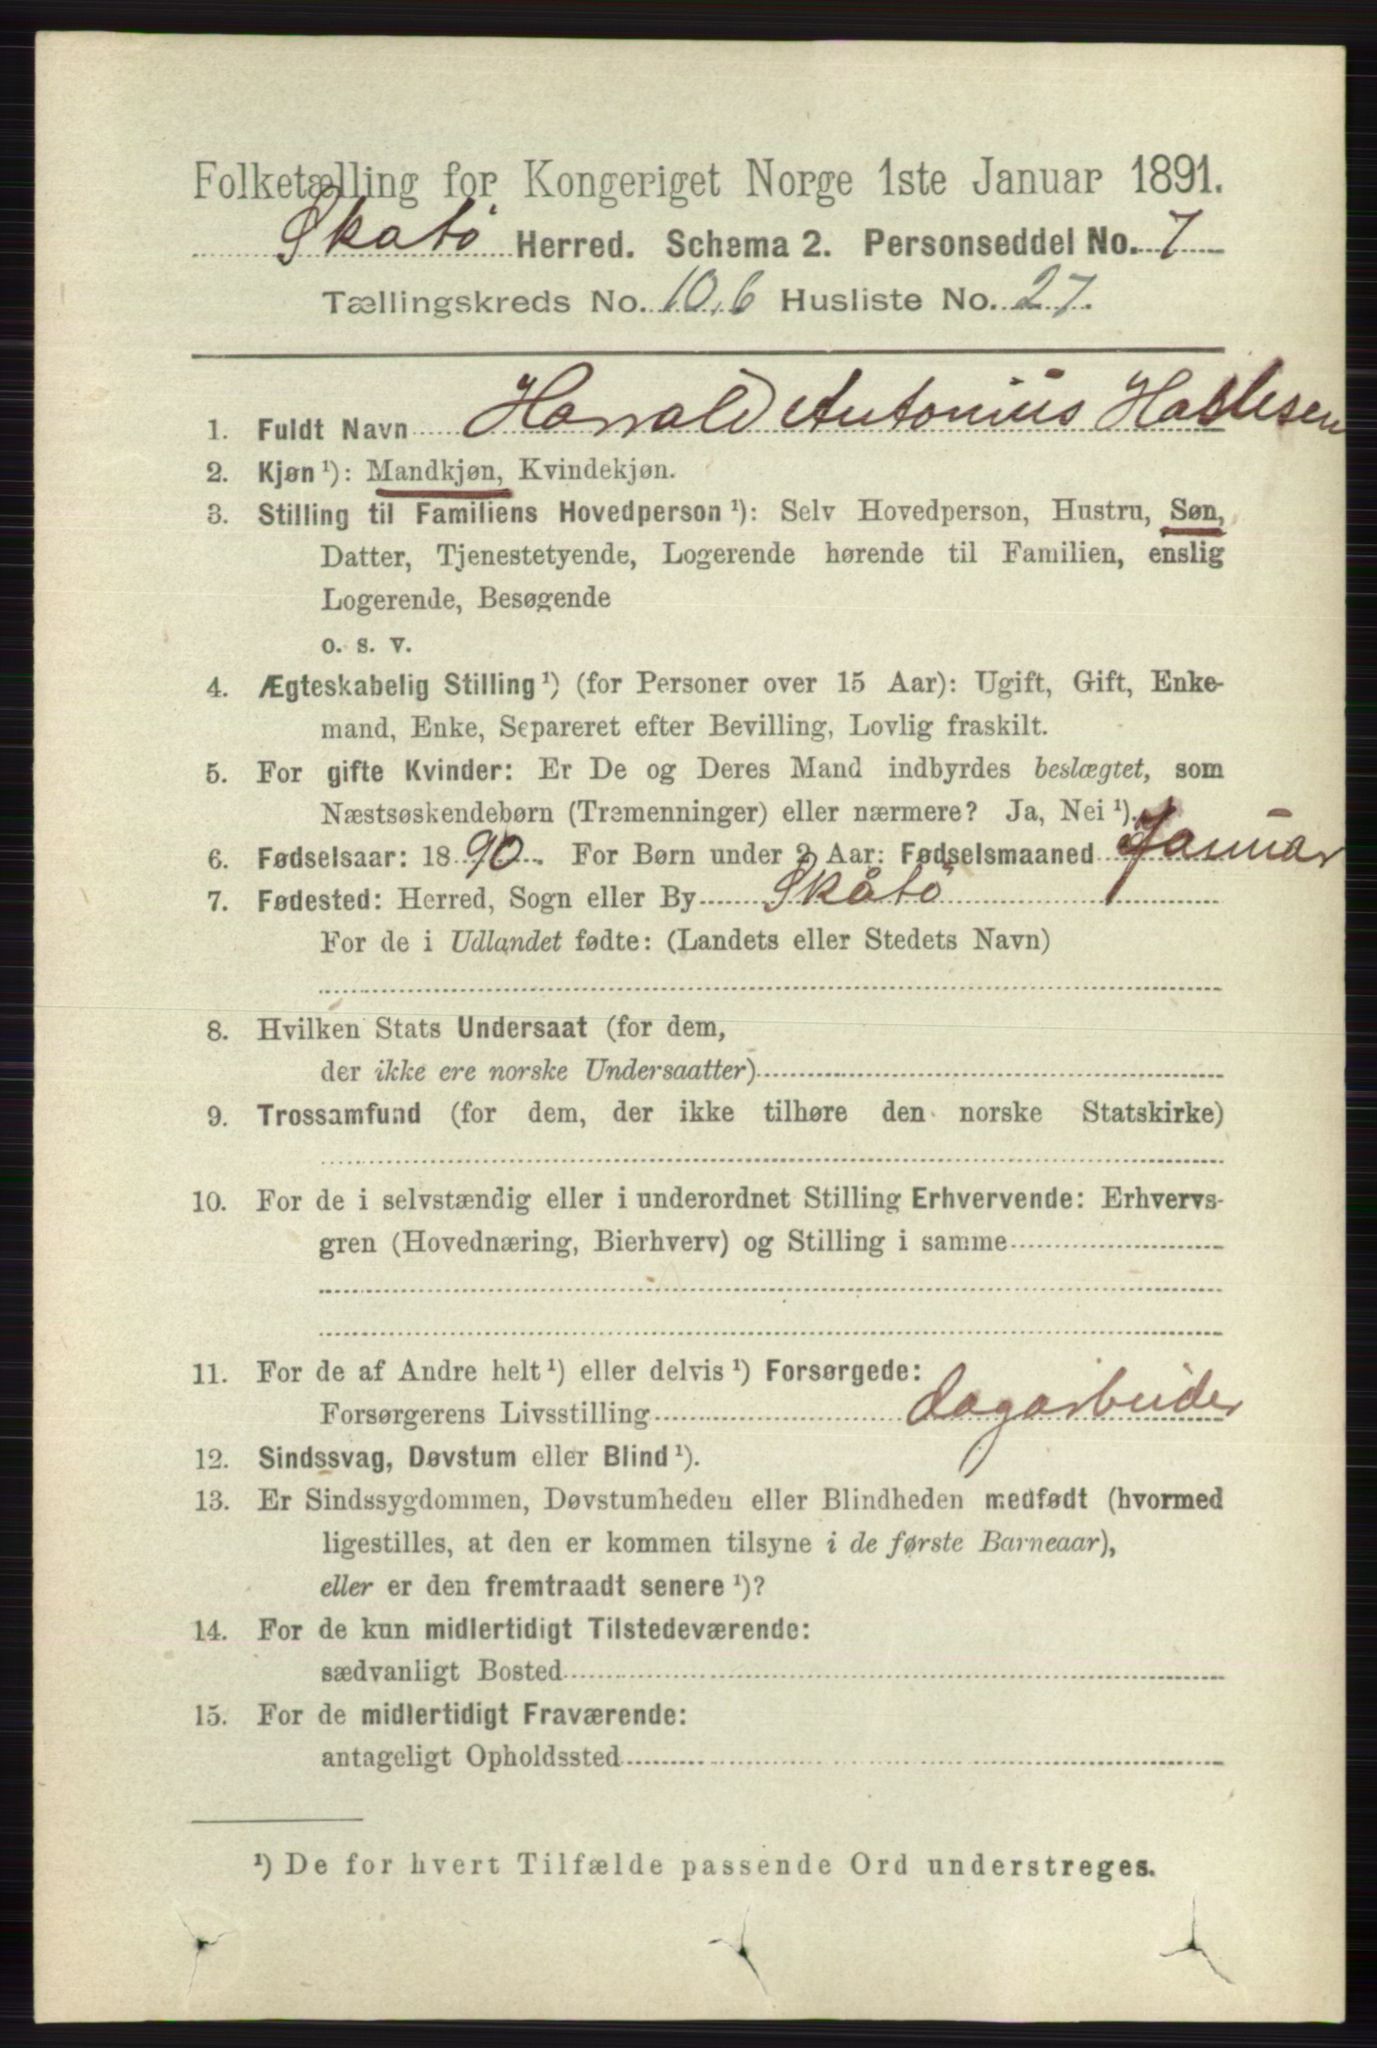 Folketælling for Kongeriget Norge 1ste Januar 1891.
Skåtö Herred. Schema 2. Personseddel No. 7
Tællingskreds No. 10,6 Husliste No. 27.
1. Fuldt Navn Harald Antonius
2. Kjøn ¹): Mandkjøn, Kvindekjøn.
3. Stilling til Familiens Hovedperson ¹): Selv Hovedperson, Hustru, Søn,
Datter, Tjenestetyende, Logerende hørende til Familien, enslig
Logerende, Besøgende
o. s. v.
4. Ægteskabelig Stilling ¹) (for Personer over 15 Aar): Ugift, Gift, Enke-
mand, Enke, Separeret efter Bevilling, Lovlig fraskilt.
5. For gifte Kvinder: Er De og Deres Mand indbyrdes beslægtet, som
Næstsøskendebørn (Tremenninger) eller nærmere? Ja, Nei ¹).
6. Fødselsaar: 1890. For Børn under 2 Aar: Fødselsmaaned Januar
7. Fødested: Herred, Sogn eller By Skåtö
For de i Udlandet fødte: (Landets eller Stedets Navn)
8. Hvilken Stats Undersaat (for dem,
der ikke ere norske Undersaatter)
9. Trossamfund (for dem, der ikke tilhøre den norske Statskirke)
10. For de i selvstændig eller i underordnet Stilling Erhvervende: Erhvervs-
gren (Hovednæring, Bierhverv) og Stilling i samme
11. For de af Andre helt ¹) eller delvis ¹) Forsørgede:
Forsørgerens Livsstilling dagarbeider
12. Sindssvag, Døvstum eller Blind ¹).
13. Er Sindssygdommen, Døvstumheden eller Blindheden medfødt (hvormed
ligestilles, at den er kommen tilsyne i de første Barneaar),
eller er den fremtraadt senere ¹)?
14. For de kun midlertidigt Tilstedeværende:
sædvanligt Bosted
15. For de midlertidigt Fraværende:
antageligt Opholdssted
¹) De for hvert Tilfælde passende Ord understreges.